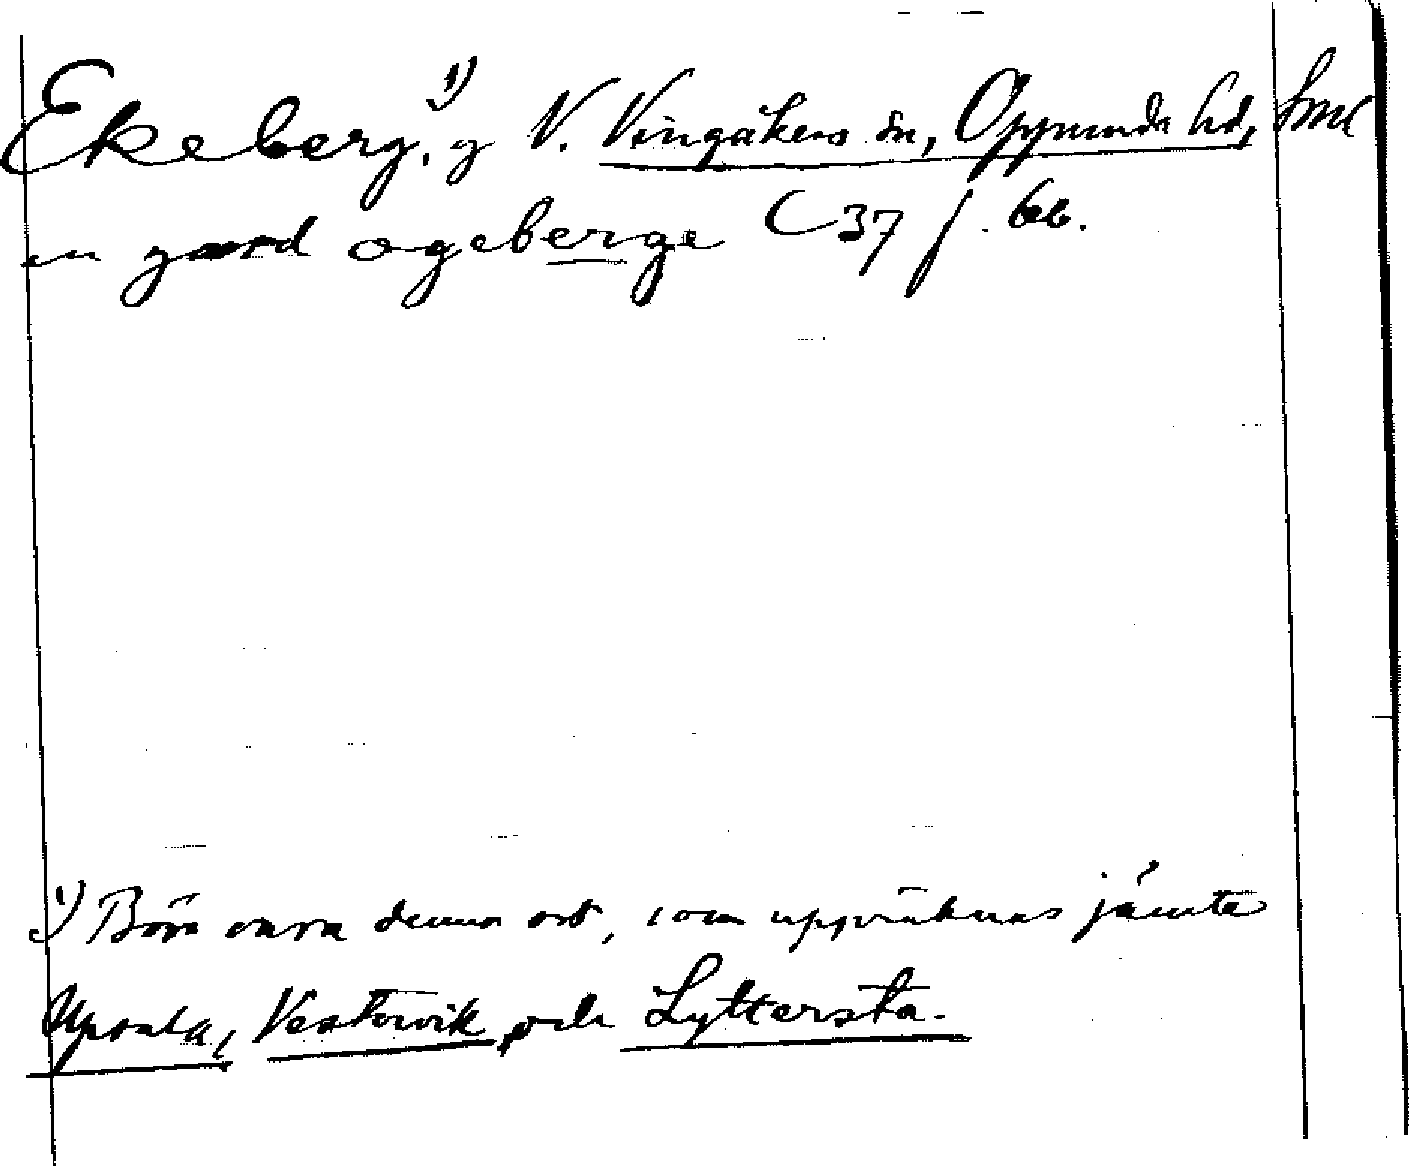 Ekeberg, ¹⁾ g V. Vingåkers sn, Oppunda hd, Sml
en gard ogeberge C 37 f. 66.
¹⁾ Böra vara denna ort, som uppräknas jämte
Upsala, Vestervik och Lyttersta.